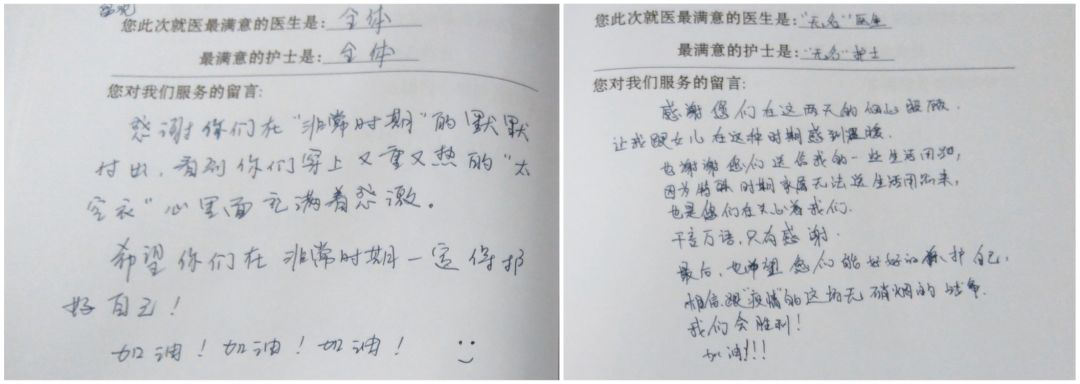 您此次就医最满意的医生是：全体
最满意的护士是：全体
您对我们服务的留言：
感谢你们在"非常时期"的默默
付出，看到你们穿上又重又热的"太
空衣"心里面充满着感激。
希望你们在非常时期一定保护
好自己！
加油！加油！加油！
您此次就医最满意的医生是："无名"医生
最满意的护士是："无名"护士
您对我们服务的留言：
感谢您们在这两天的细心照顾.
让我跟女儿在这种时期感到温暖.
也谢谢您们送给我的一些生活用品,
因为特殊时期家属无法送生活用品来,
也是您们在关心着我们.
千言万语,只有感谢.
最后,也希望您们能好好的保护自己,
相信跟"疫情"的这场无硝烟的战争.
我们会胜利!
加油!!!